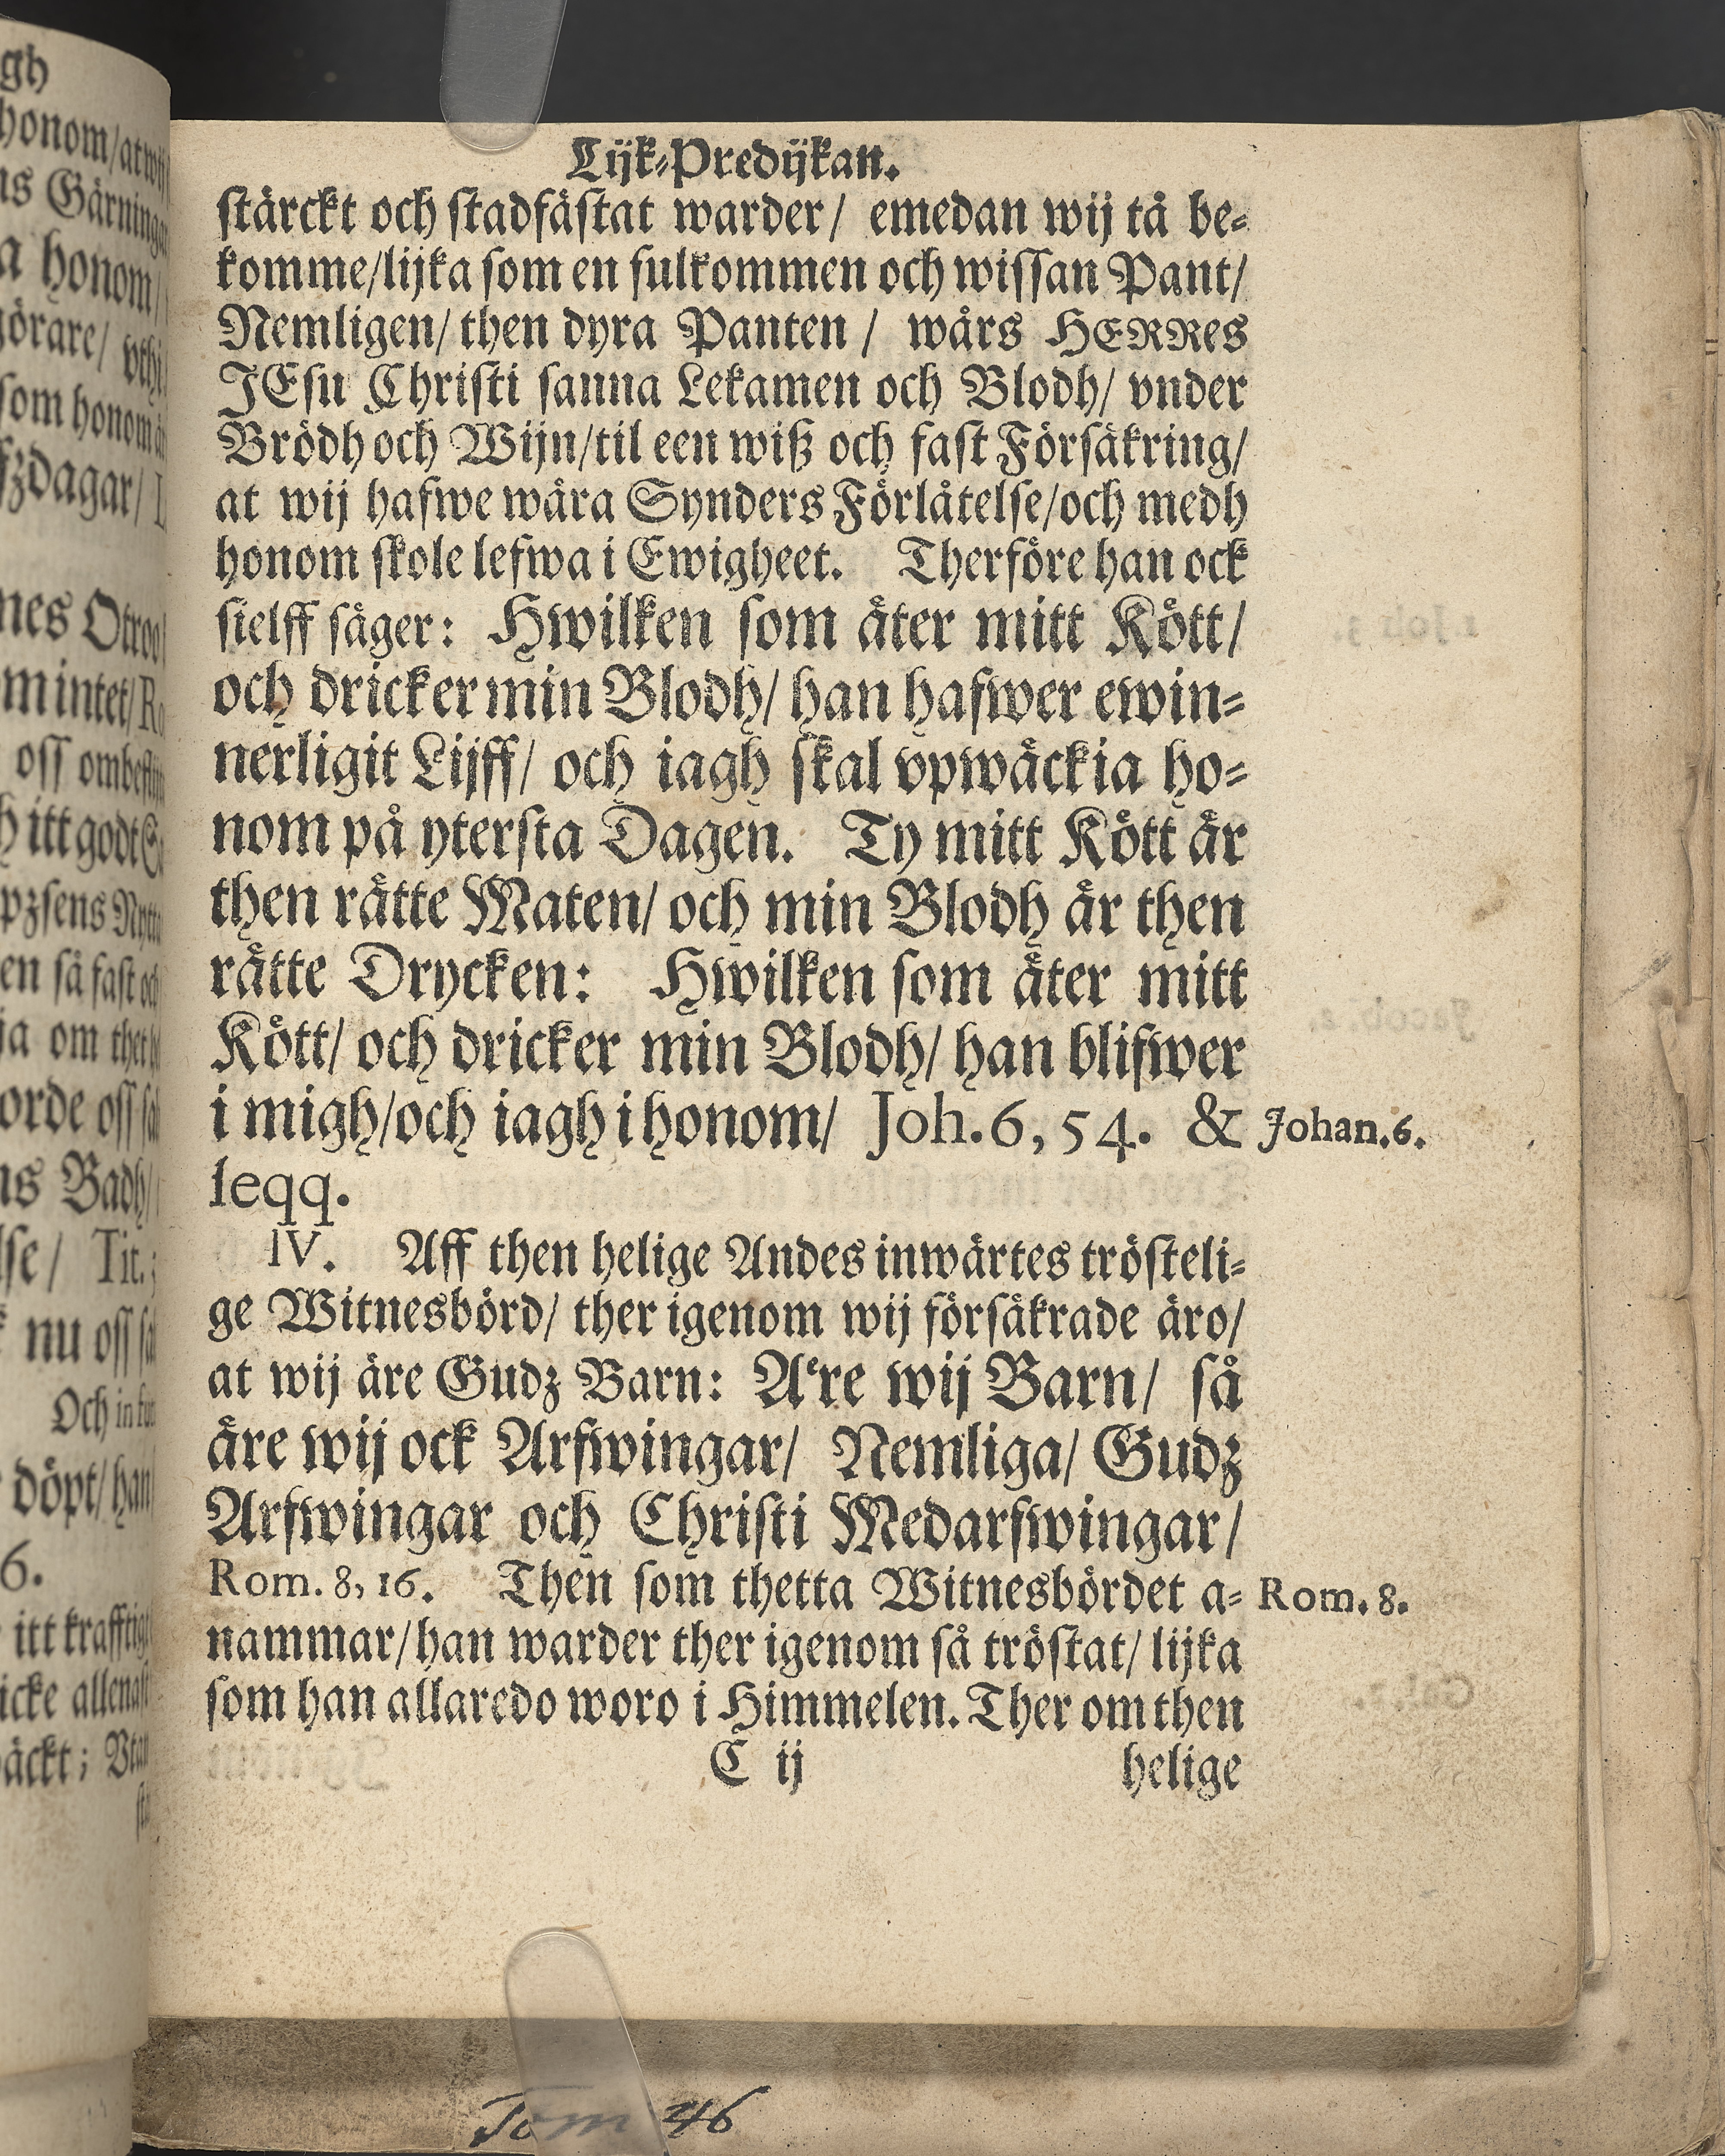 Lijk-Predijkan.
stärckt och stadfästat warder/ emedan wij tå be-
komme/lijka som en fulkommen och wissan Pant/
Nemligen/ then dyra Panten / wårs HERRes
JEsu Christi sanna Lekamen och Blodh/ vnder
Brödh och Wijn/til een wiß och fast Försäkring/
at wij hafwe wåra Synders Förlåtelse/och medh
honom skole lefwa i Ewigheet. Therföre han ock
sielff säger: Hwilken som äter mitt Kött/
och dricker min Blodh/ han hafwer ewin-
nerligit Lijff/ och iagh skal vpwäckia ho-
nom på ytersta Dagen. Ty mitt Kött är
then rätte Maten/ och min Blodh är then
rätte Drycken: Hwilken som äter mitt
Kött/ och dricker min Blodh/ han blifwer
i migh/och iagh i honom/ Joh. 6, 54. & Johan. 6.
seqq.
IV. Aff then helige Andes inwärtes trösteli-
ge Witnesbörd/ ther igenom wij försäkrade äro/
at wij äre Gudz Barn: Äre wij Barn/ så
äre wij ock Arfwingar/ Nemliga/ Gudz
Arfwingar och Christi Medarfwingar/
Rom. 8, 16. Then som thetta Witnesbördet a- Rom. 8.
nammar/han warder ther igenom så tröstat/ lijka
som han allaredo woro i Himmelen. Ther om then
C ij helige
gh
honom/
Gärninga
honom/
som honom
dagar/
intet/
oss
itt godt
en så fast
om thet
orde oss
Badh/
Tit.
nu oss
Och in
döpt/ han
6.
itt krafftig
icke allenast
Tom 46